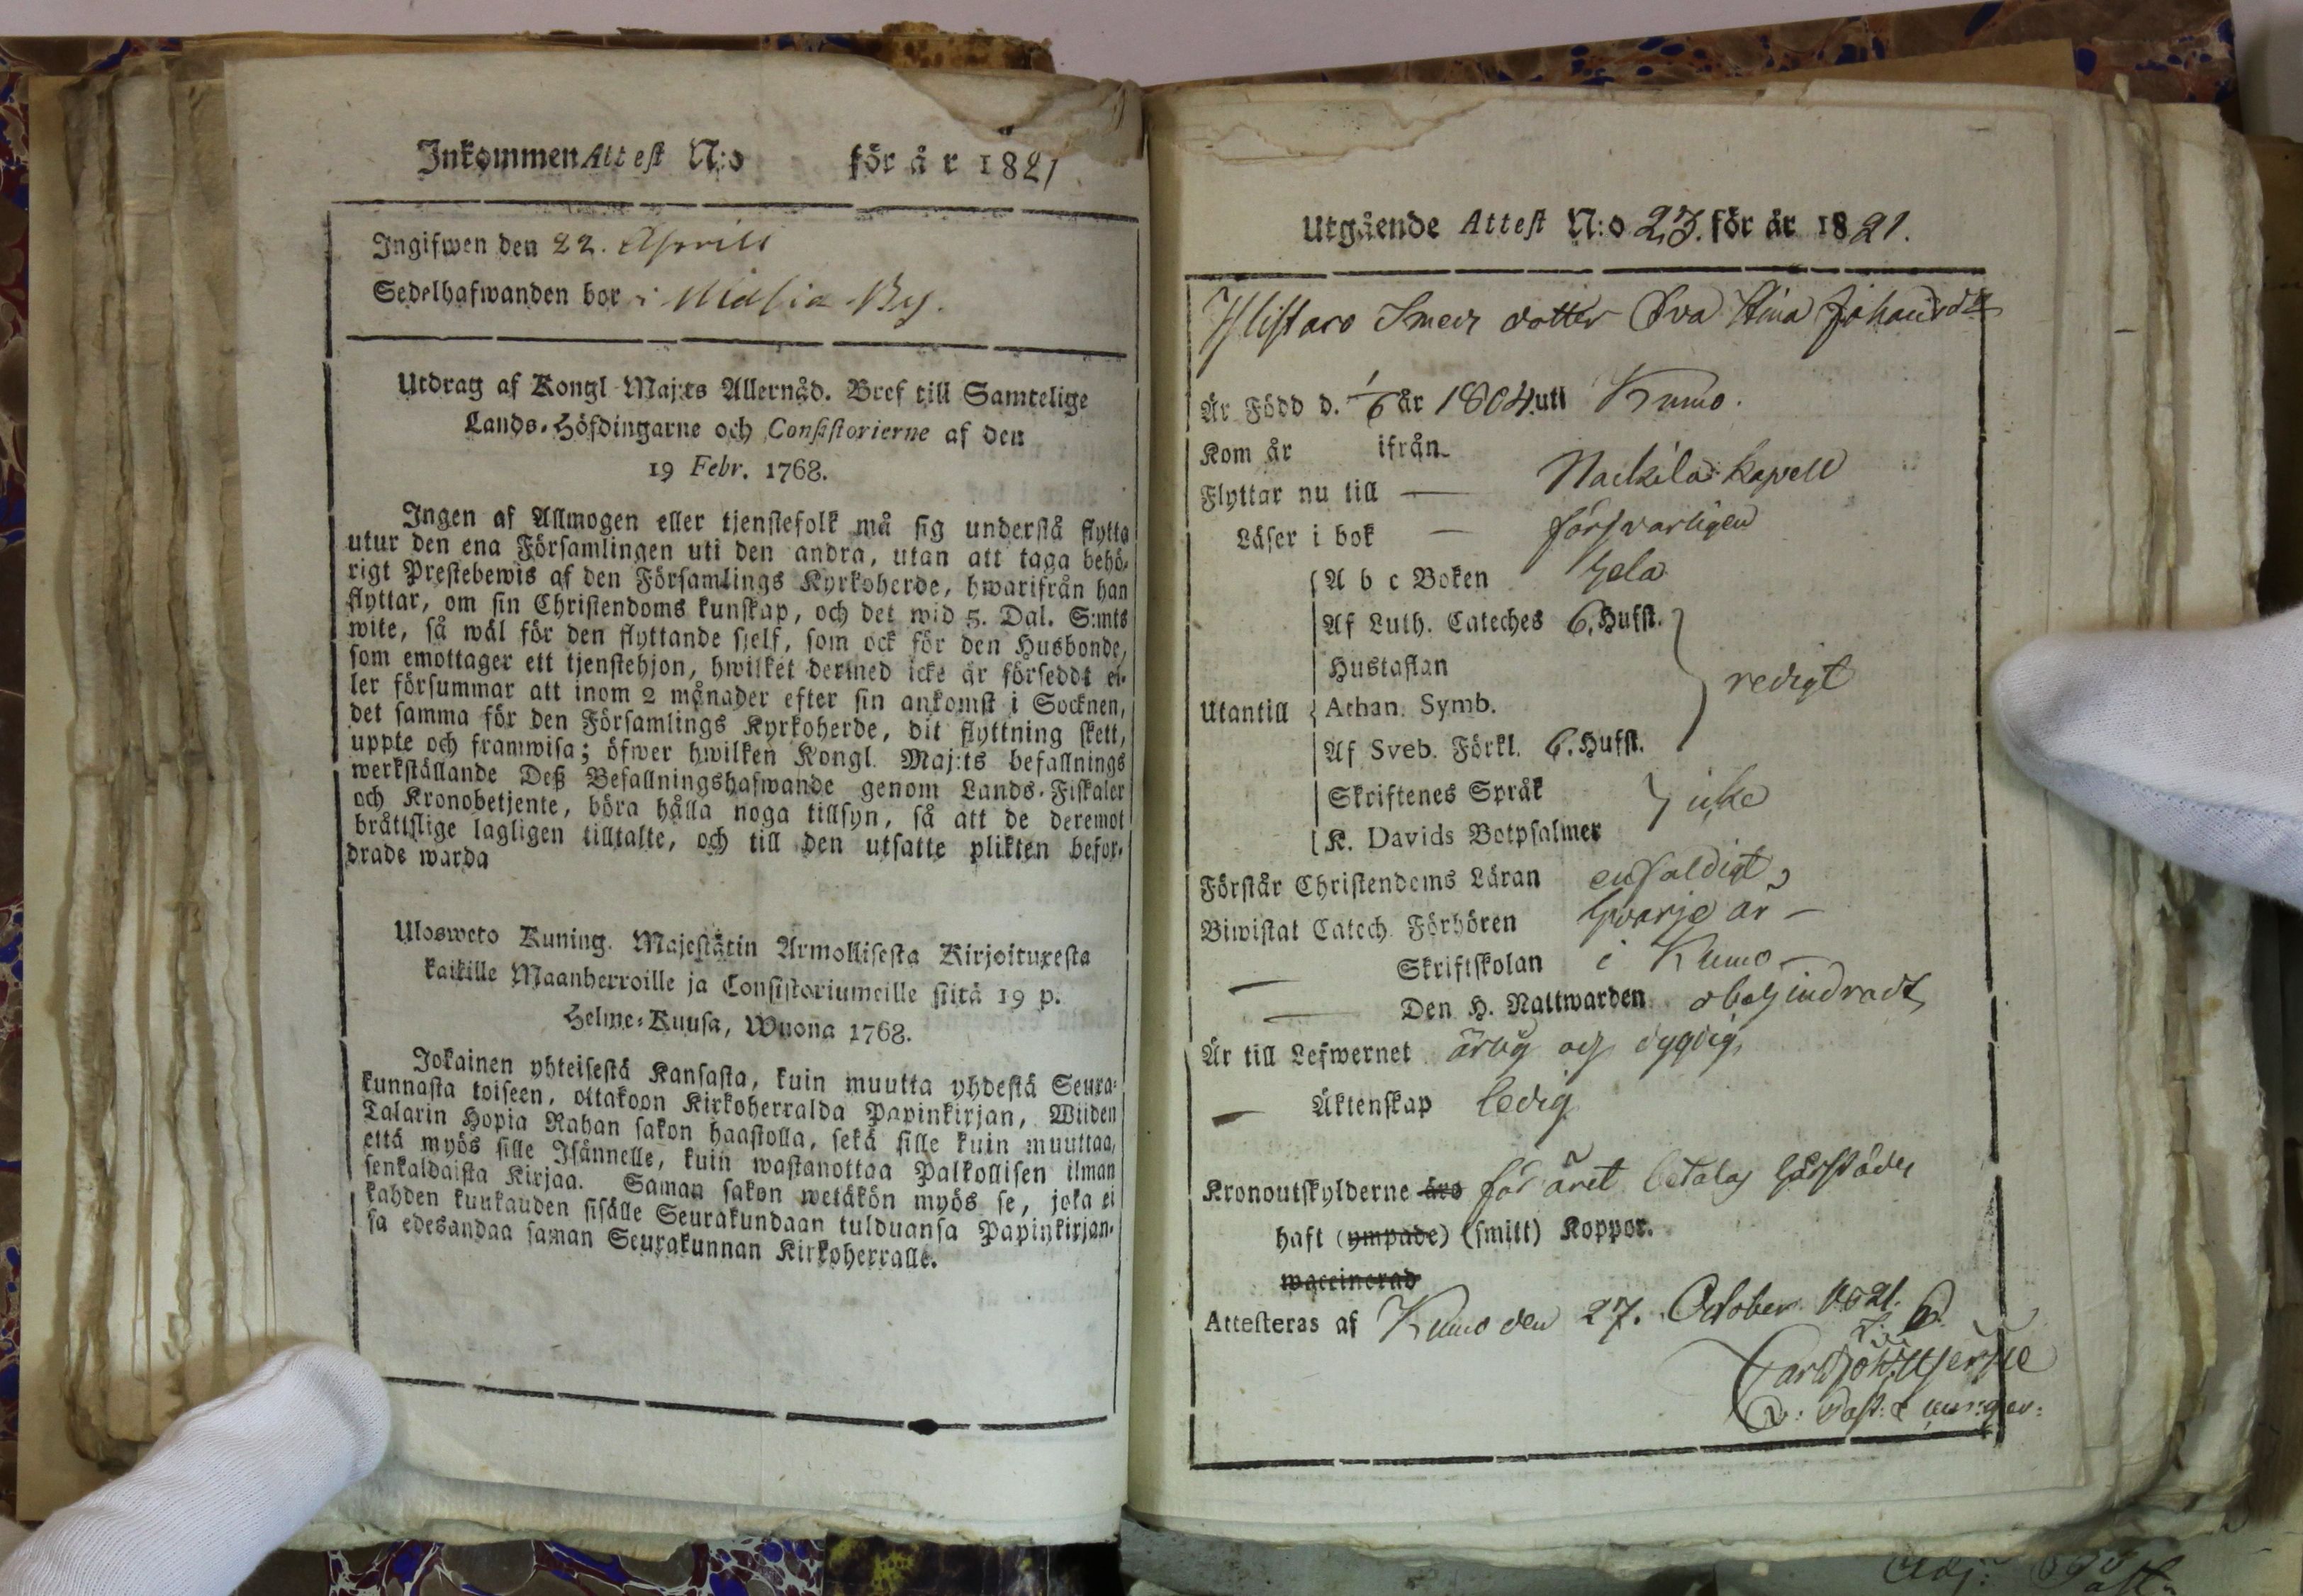 Inkommen Attest N:o för år 1821
Ingifwen den 22. Aprill
Sedelhafwanden bor i By.
Utdrag af Kongl Maj:ts Allernåd. Bref till Samtelige
Lands-Höfdingarne och Consistorierne af den
19 Febr. 1768.
Ingen af Allmogen eller tjenstefolk må sig understå flytta
utur den ena Församlingen uti den andra, utan att taga behö-
rigt Prestebewis af den Församlings Kyrkoherde, hwarifrån han
flyttar, om sin Christendoms kunskap, och det wid 5. Dal. S:mts
wite, så wäl för den flyttande sjelf, som ock för den Husbonde,
som emottager ett tjenstehjon, hwilket dermed icke är förseddt el-
ler försummar att inom 2 månader efter sin ankomst i Socknen,
det samma för den Församlings Kyrkoherde, dit flyttning skett,
uppte och framwisa; öfwer hwilken Kongl. Maj:ts befallnings
werkställande Deß Befallningshafwande genom Lands-Fiskaler
och Kronobetjente, böra hålla noga tillsyn, så att de deremot
bråttslige lagligen tilltalte, och till den utsatte plikten befor-
drade warda
Ulosweto Kuning. Majestätin Armollisesta Kirjoituxesta
kaikille Maanherroille ja Consistoriumeille siitä 19 p.
Helme-Kuusa, Wuona 1768.
Jokainen yhteisestä Kansasta, kuin muutta yhdestä Seura-
kunnasta toiseen, ottakoon Kirkoherralda Papinkirjan, Wiiden
Talarin Hopia Rahan sakon haastolla, sekä sille kuin muuttaa,
että myös sille Isännelle, kuin wastanottaa Palkollisen ilman
senkaldaista Kirjaa. Saman sakon wetäkön myös se, joka ei
kahden kuukauden sisälle Seurakundaan tulduansa Papinkirjan-
sa edesandaa saman Seurakunnan Kirkoherralle.
Utgående Attest N:o 23. för år 1821.
Ylistaro Smeds dotter Eva Stina Johansdr
Är Född d. 1/6 år 1804 uti Kumo.
Kom år ifrån
Flyttar nu till — Nackila Kapell
Läser i bok — försvarligen
A b c Boken hela
Af Luth. Cateches 6. Hufst.
Hustaflan
redigt
Utantill Athan. Symb.
Af Sveb. Förkl. 6. Hufst.
Skriftenes Språk
icke
K. Davids Botpsalmer
Förstår Christendoms Läran enfaldigt
Biwistat Catech. Förhören hvarje år —
— Skriftskolan i Kumo —
— Den H. Nattwarden obehindradt
Är till Lefwernet ärlig och dygdig
— Äktenskap ledig
Kronoutskylderne äro för året betalas härstädes
haft (ympade) (smitt) Koppor.
waccinerad
Attesteras af Kumo den 27. October 1821.